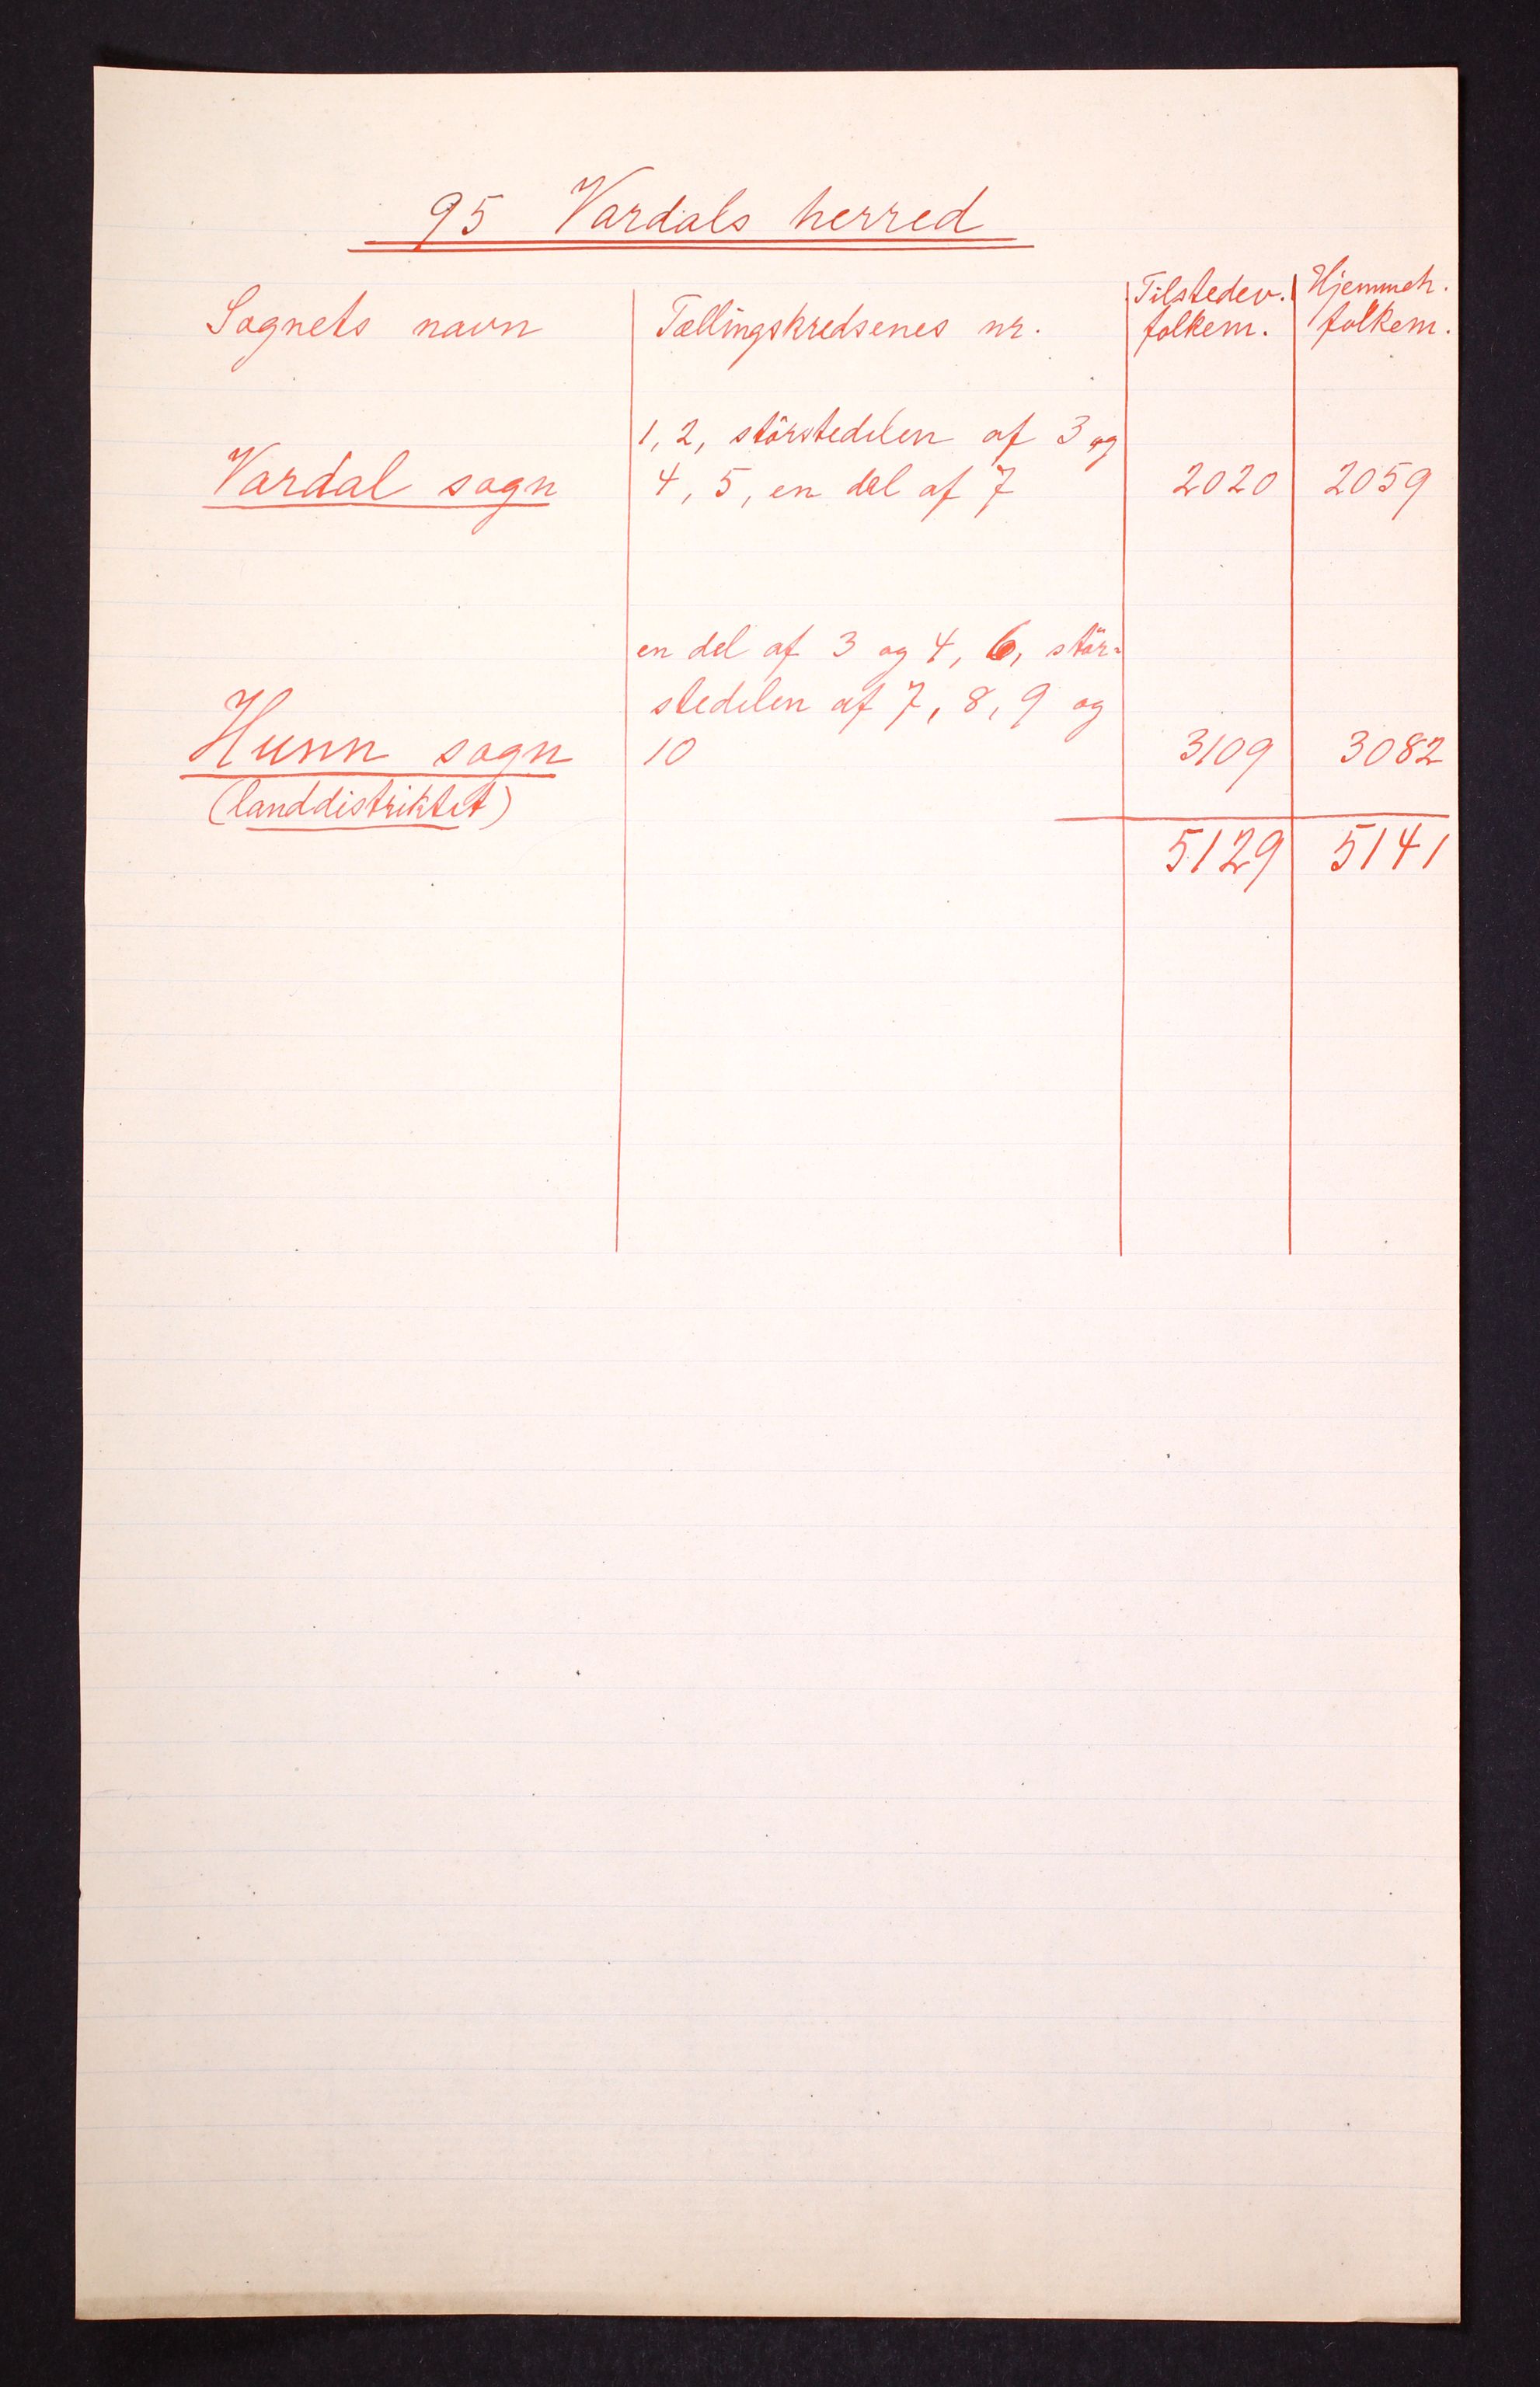 95 Vardals herred
Sognets navn Tællingskredsenes nr. Tilstedev. folkem. Hjemmeh. folkem.
1, 2, störstedelen af 3 og
Vardal sogn 4, 5, en del af 7 2020 2059
en del af 3 og 4, 6, stör=
stedelen af 7, 8, 9 og
Hunn sogn 10 3109 3082
(landdistriktet)
5129 5141